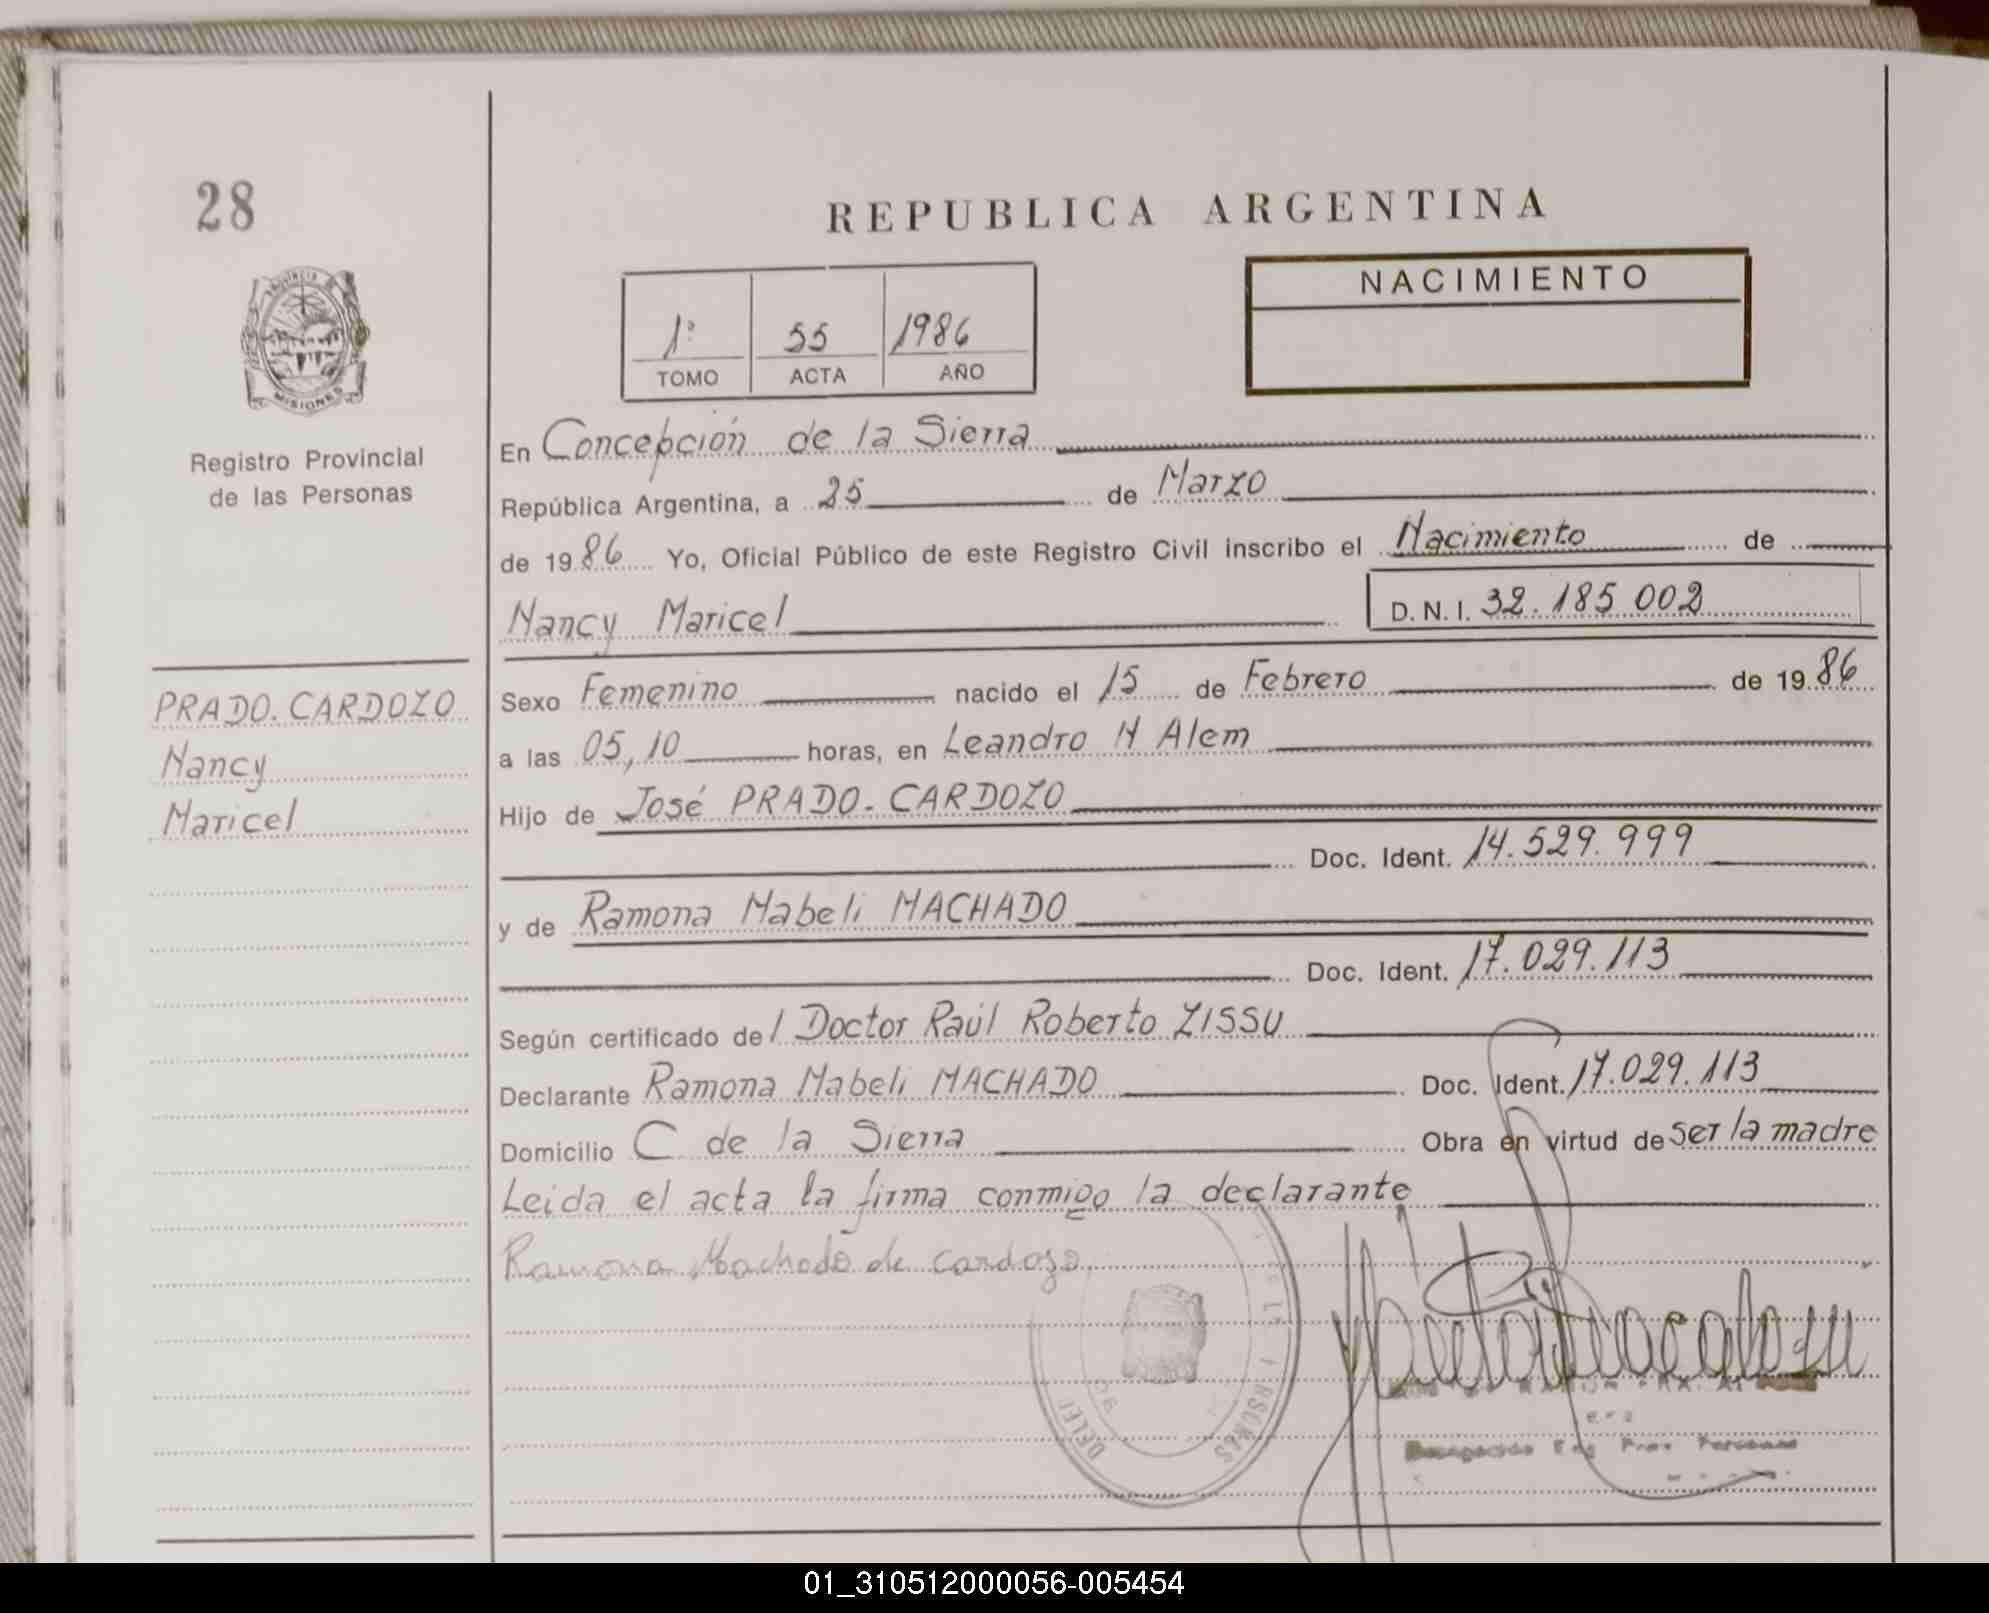 28
REPUBLICA ARGENTINA
NACIMIENTO
1º 55 1986
TOMO ACTA AÑO
PROVINCIA DE
MISIONES
Registro Provincial
de las Personas
En Concepción de la Sierra
República Argentina, a 25 de Marzo
de 1986 Yo, Oficial Público de este Registro Civil inscribo el Nacimiento de
Nancy Maricel D.N.I. 32.185.002
PRADO-CARDOZO
Nancy
Maricel
Sexo Femenino nacido el 15 de Febrero de 1986
a las 05,10 horas, en Leandro N Alem
Hijo de José PRADO-CARDOZO
Doc. Ident. 14.529.999
y de Ramona Mabeli MACHADO
Doc. Ident. 17.029.113
Según certificado del Doctor Raúl Roberto ZISSU
Declarante Ramona Mabeli MACHADO Doc. Ident. 17.029.113
Domicilio C de la Sierra Obra en virtud de ser la madre
Leida el acta la firma conmigo la declarante
Ramona Machado de Cardozo
01_310512000056-005454